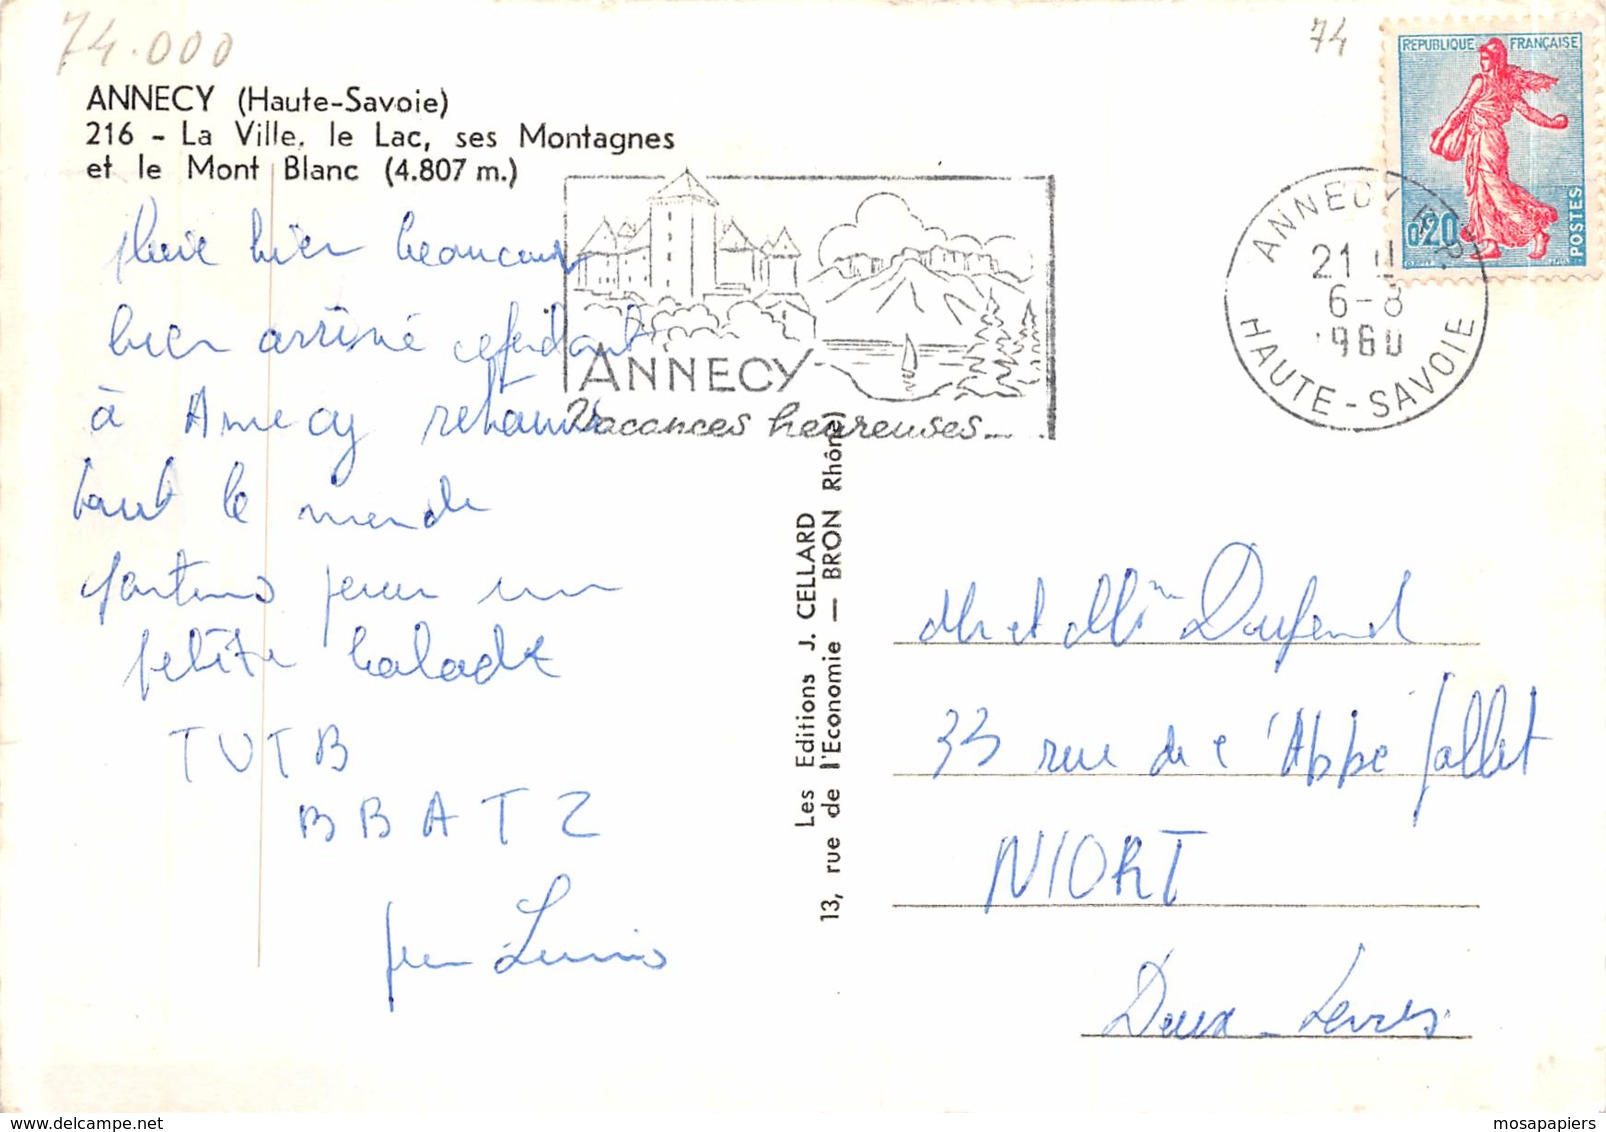 74.000
74
REPUBLIQUE FRANÇAISE
0,20
POSTES
ANNECY (Haute-Savoie)
216 - La Ville, le Lac, ses Montagnes
et le Mont Blanc (4.807 m.)
ANNECY R.P.
21 H
6-8
1960
HAUTE-SAVOIE
ANNECY
Vacances heureuses...
pluie hier beaucoup
bien arrivé cependant
à Annecy retrouvé
tout le monde
partons pour une
petite balade
T U T B
B B A T Z
Les Editions J. CELLARD
13, rue de l'Economie — BRON Rhône)
Mr et Mme
33 rue de l'Abbé Jallet
NIORT
Deux-Sèvres
mosapapiers